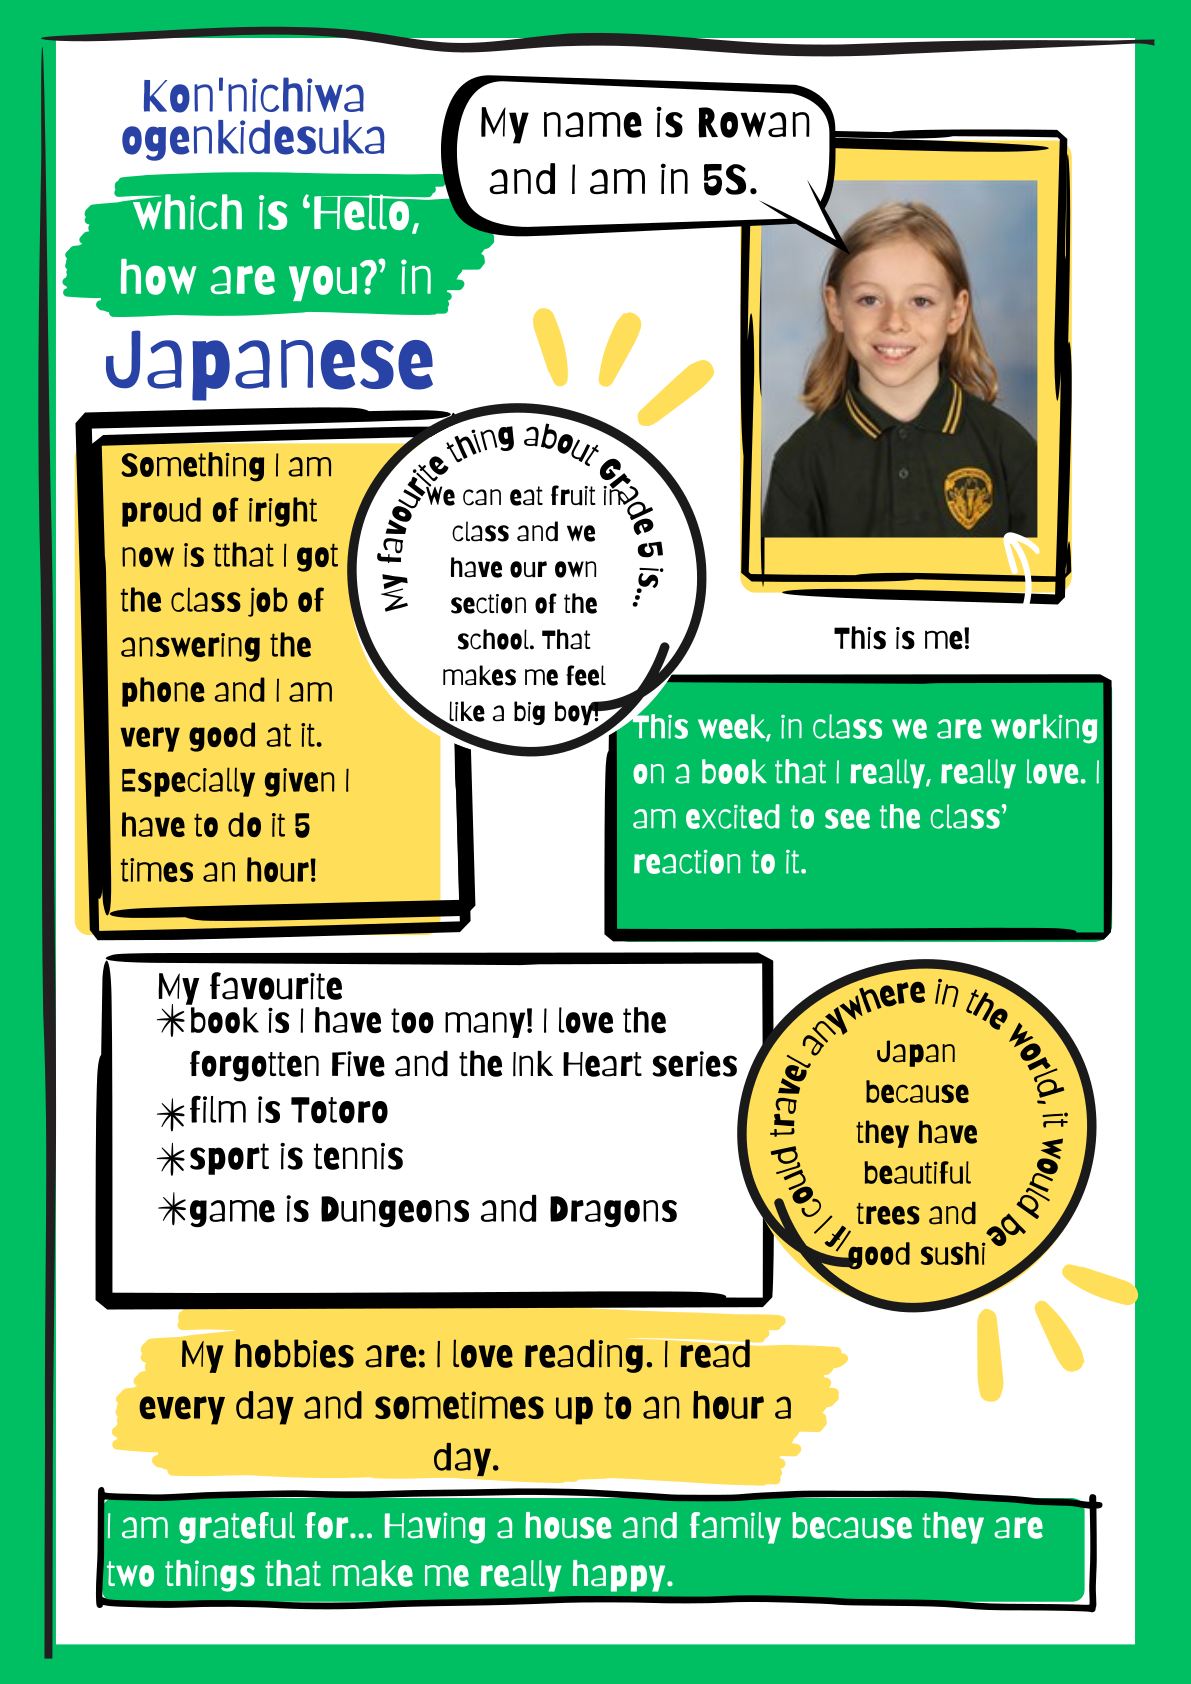 Kon'nichiwa
ogenkidesuka
which is ‘Hello,
how are you?’ in
Japanese
My name is Rowan
and I am in 5S.
This is me!
Something I am
proud of iright
now is tthat I got
the class job of
answering the
phone and I am
very good at it.
Especially given I
have to do it 5
times an hour!
My favourite thing about Grade 5 is...
We can eat fruit in
class and we
have our own
section of the
school. That
makes me feel
like a big boy!
This week, in class we are working
on a book that I really, really love. I
am excited to see the class’
reaction to it.
My favourite
book is I have too many! I love the
forgotten Five and the Ink Heart series
film is Totoro
sport is tennis
game is Dungeons and Dragons
If I could travel anywhere in the world, it would be
Japan
because
they have
beautiful
trees and
good sushi
My hobbies are: I love reading. I read
every day and sometimes up to an hour a
day.
I am grateful for... Having a house and family because they are
two things that make me really happy.